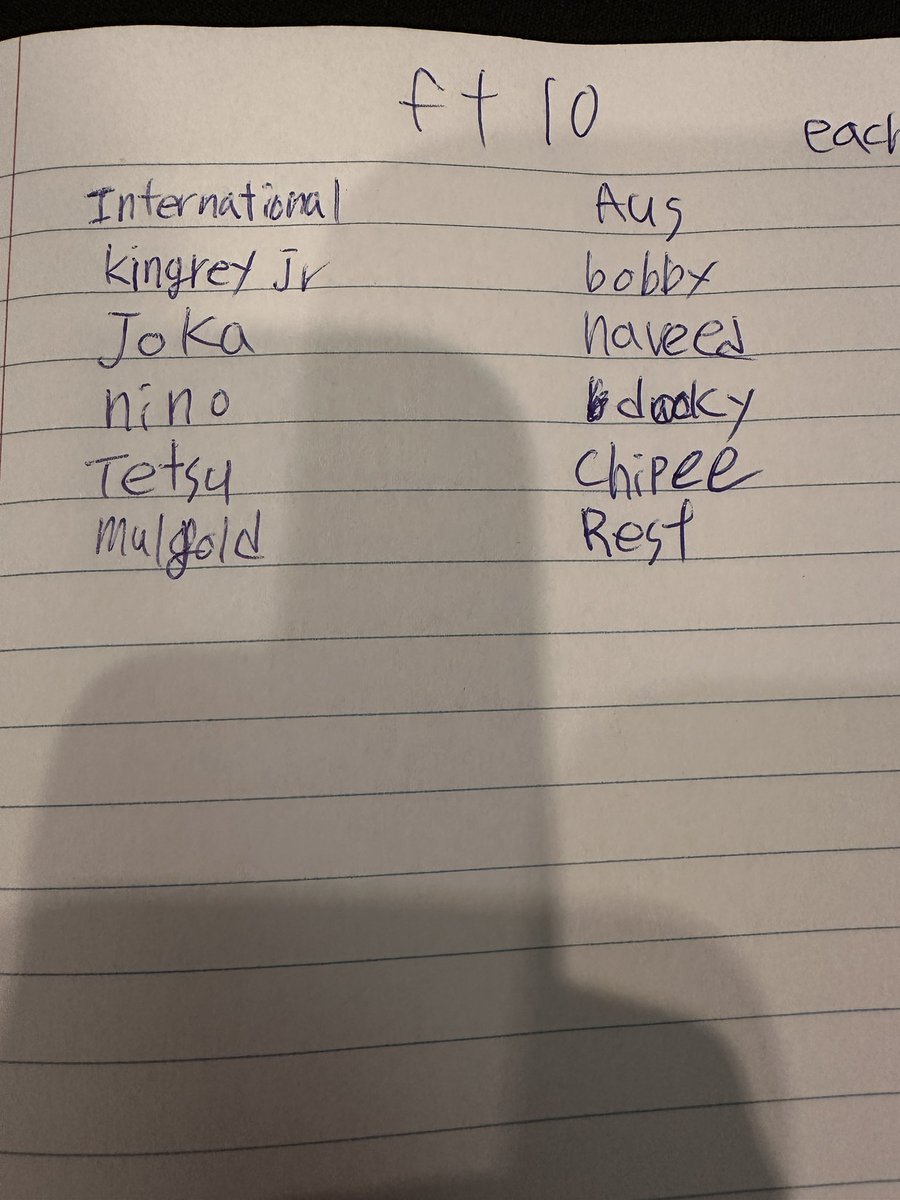 ft 10
each
International Aus
kingrey Jr bobby
Joka naveed
nino dooky
Tetsu Chipee
Mulgold Rest